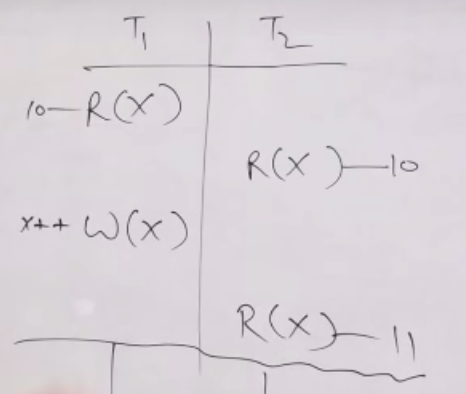 T1 T2
10—R(X)
R(X)—10
X++ W(X)
R(X)—11